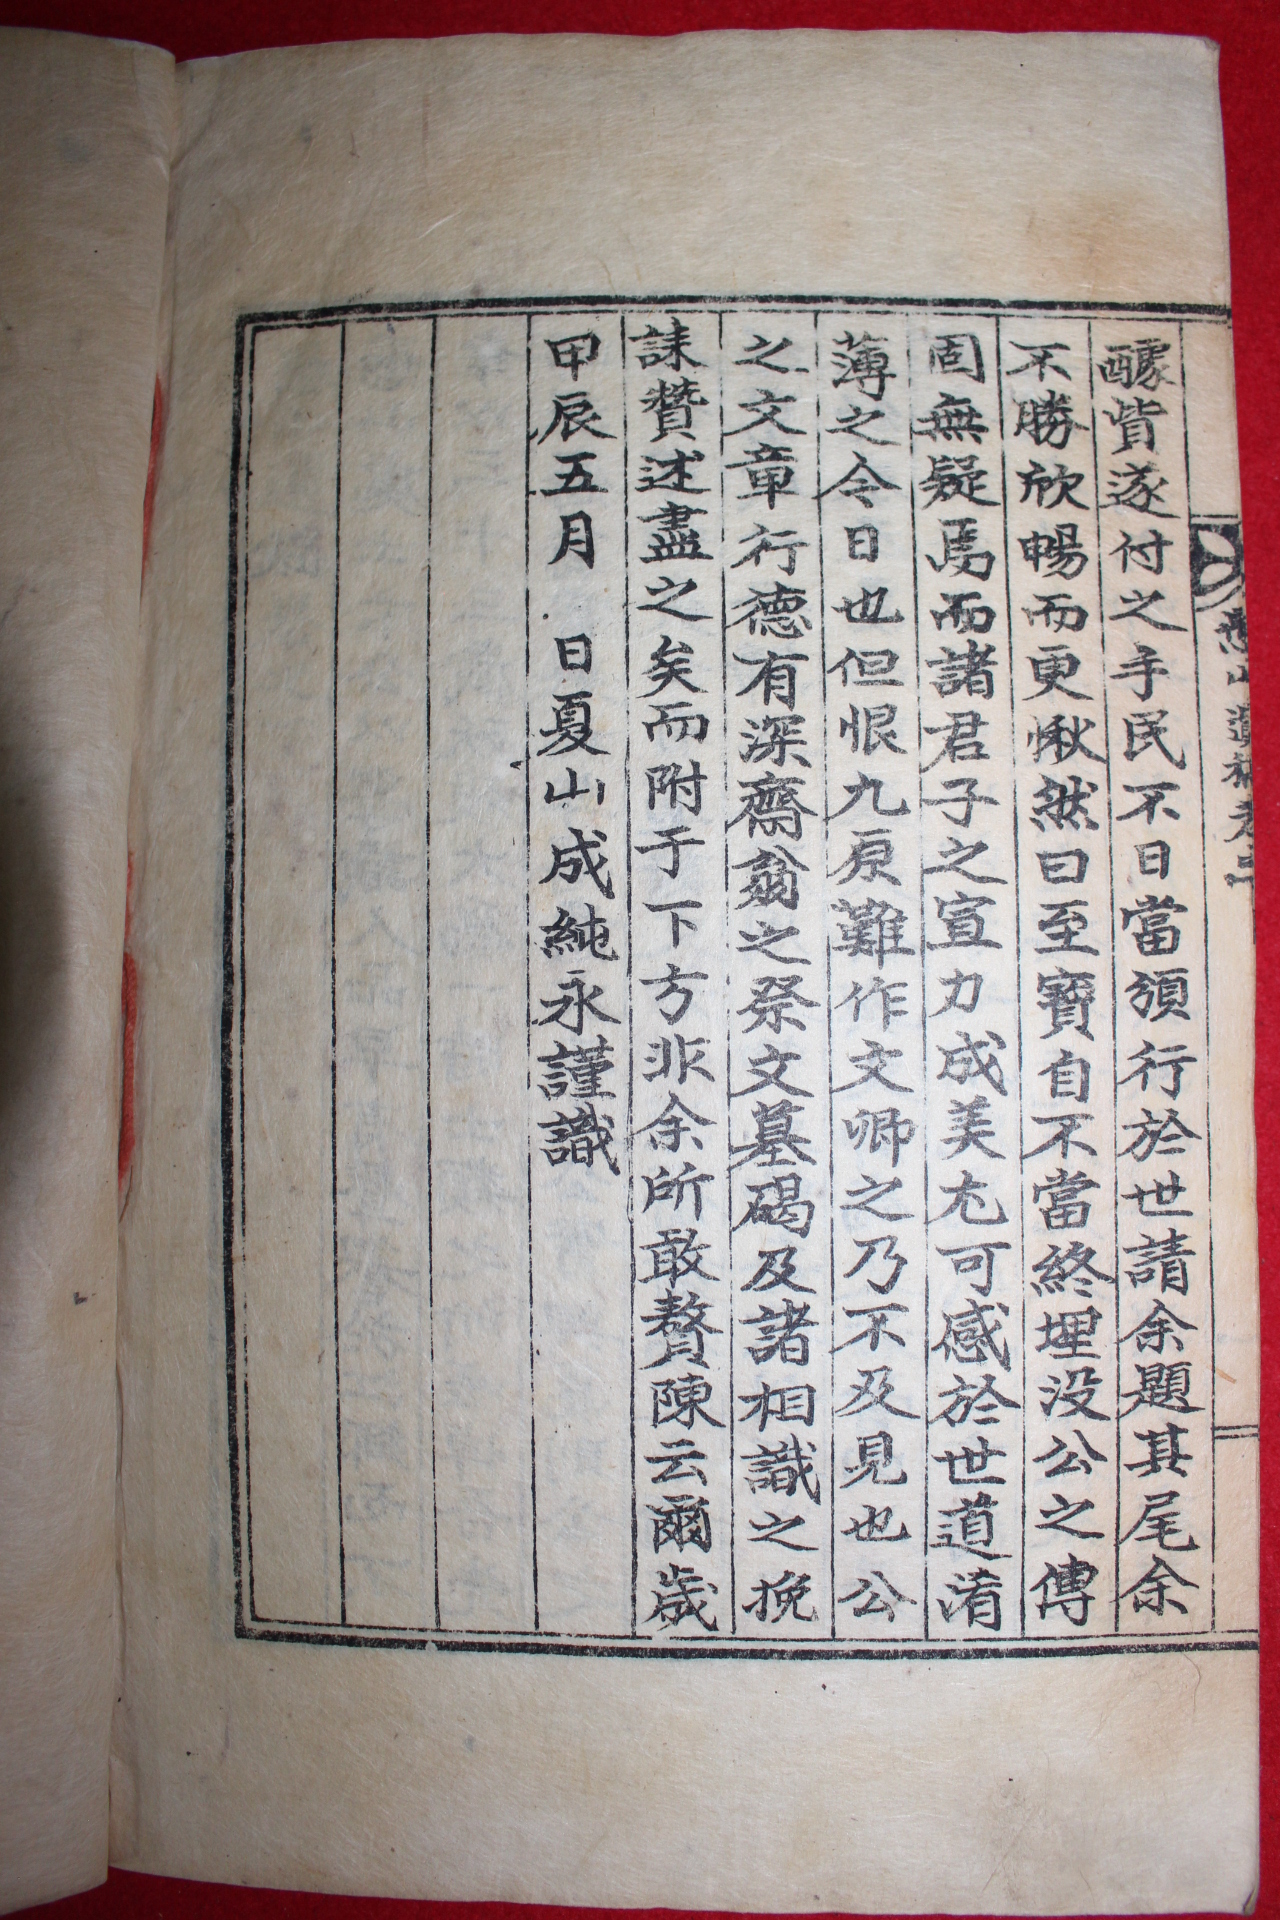 醵貲遂付之手民不日當頒行於世請余題其尾余
不勝欣暢而更愀然曰至寶自不當終埋没公之傳
固無疑焉而諸君子之宣力成美尤可感於世道淆
薄之今日也但恨九原難作文卿之乃不及見也公
之文章行德有深齋翁之祭文墓碣及諸相識之挽
誄贊述盡之矣而附于下方非余所敢贅陳云爾歲
甲辰五月 日夏山成純永謹識
山遺稿卷二